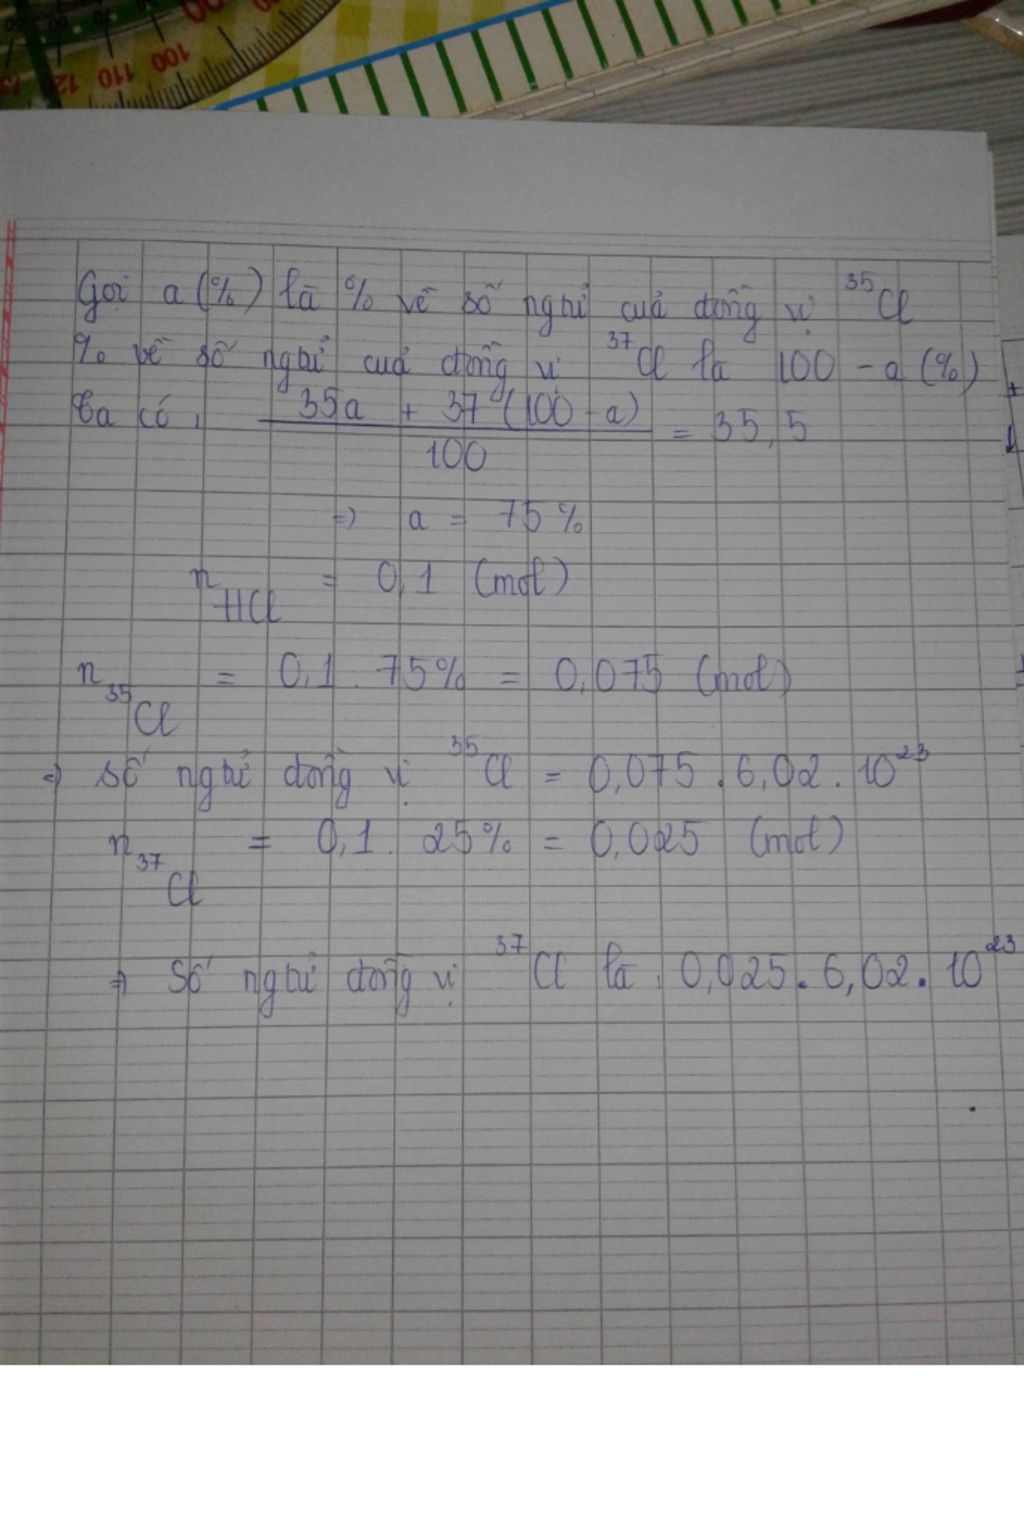 100 110 120
Gọi a (%) là % về số ngtử của đồng vị ³⁵Cl
% về số ngtử của đồng vị ³⁷Cl là 100 - a (%)
Ta có: (35a + 37(100 - a)) / 100 = 35,5
=> a = 75%
n HCl = 0,1 (mol)
n ³⁵Cl = 0,1 . 75% = 0,075 (mol)
=> Số ngtử đồng vị ³⁵Cl = 0,075 . 6,02 . 10²³
n ³⁷Cl = 0,1 . 25% = 0,025 (mol)
=> Số ngtử đồng vị ³⁷Cl là : 0,025 . 6,02 . 10²³